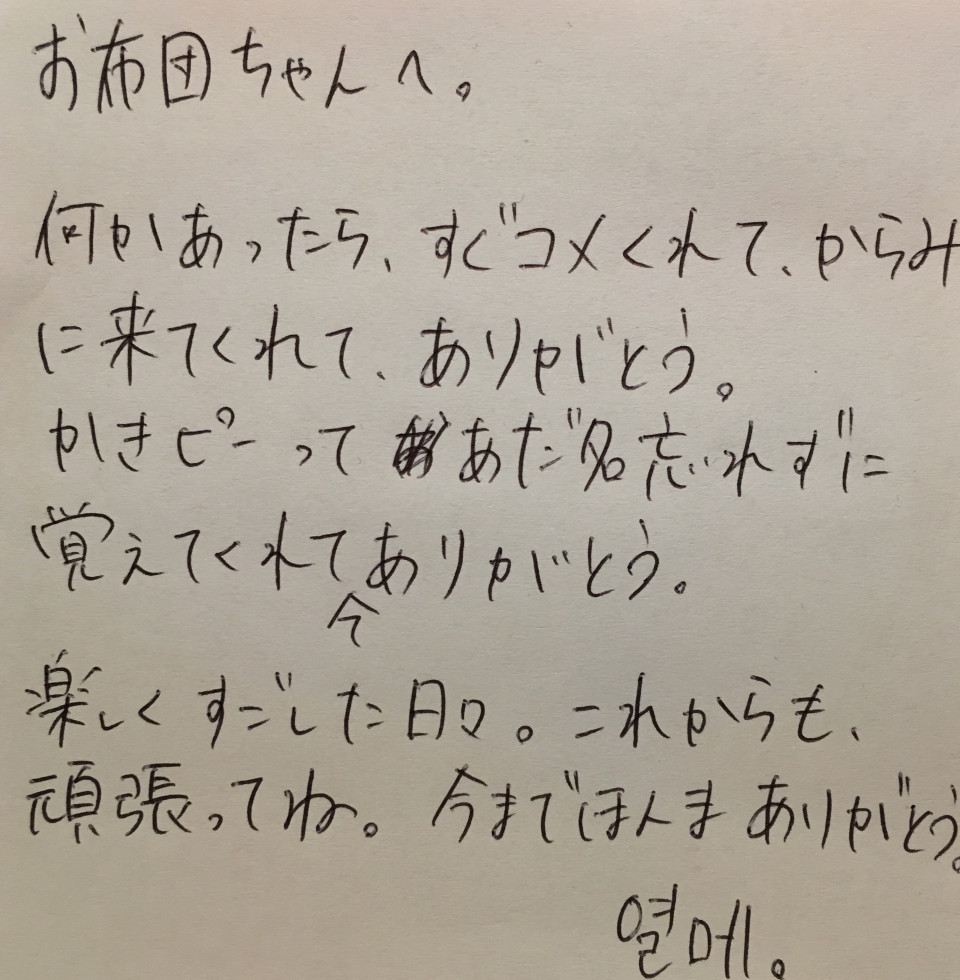 お布団ちゃんへ。
何かあったら、すぐコメくれて、からみ
に来てくれて、ありがとう。
かきピーってあだ名忘れずに
覚えてくれてありがとう。
今
楽しくすごした日々。これからも、
頑張ってね。今までほんまありがとう。
열메。